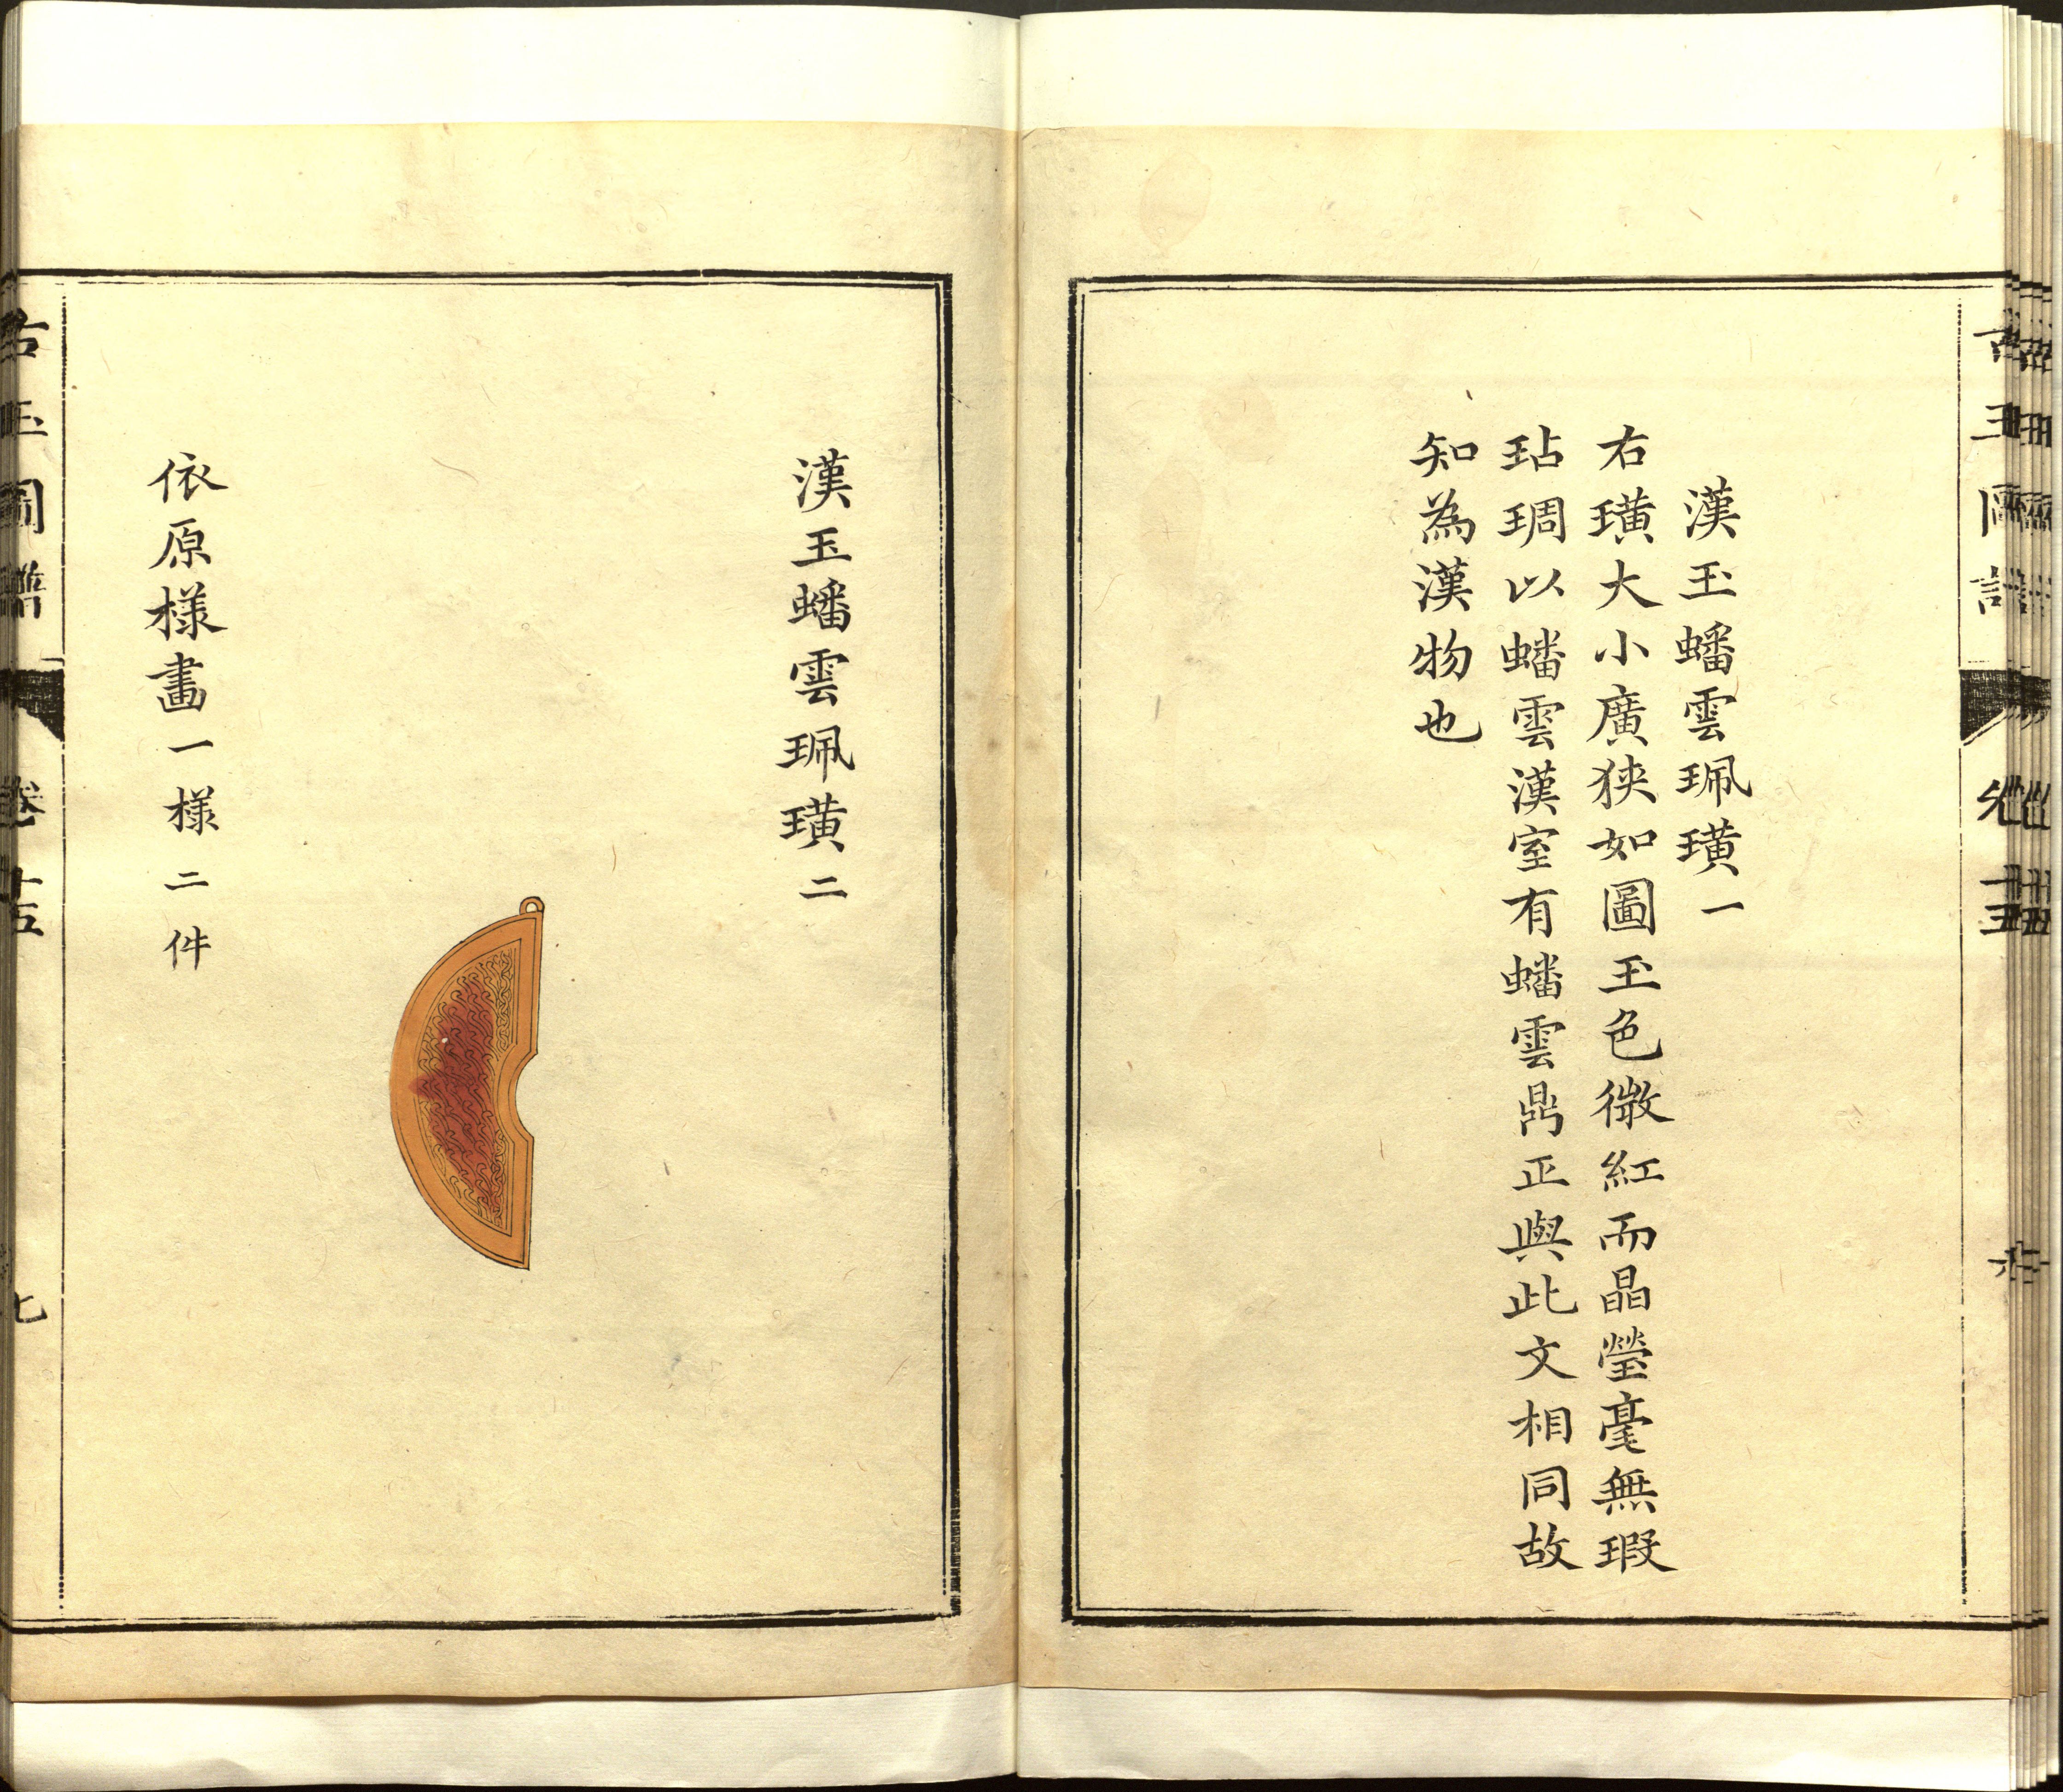 漢玉蟠雲珮璜一
右璜大小廣狹如圖玉色微紅而晶瑩毫無瑕
玷琱以蟠雲漢室有蟠雲鼎正與此文相同故
知為漢物也
漢玉蟠雲珮璜二
依原様畫一様二件
古玉圖譜
卷十五
七